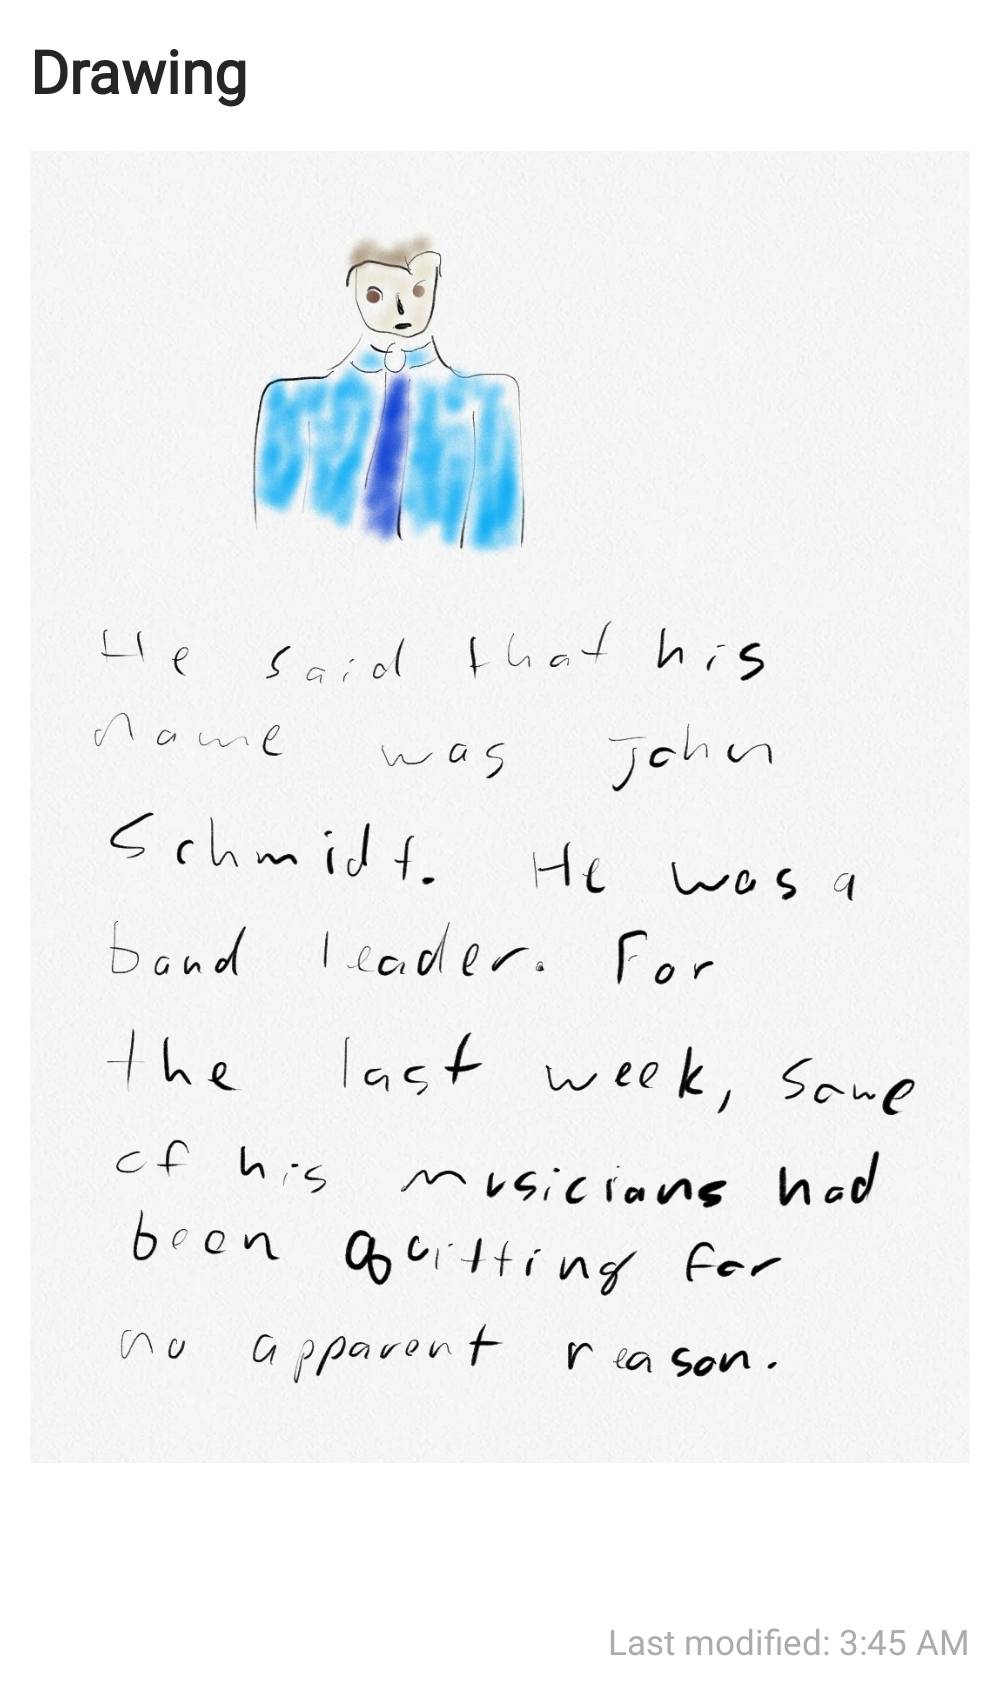 Drawing
He said that his
name was John
Schmidt. He was a
band leader. For
the last week, some
of his musicians had
been quitting for
no apparent reason.
Last modified: 3:45 AM